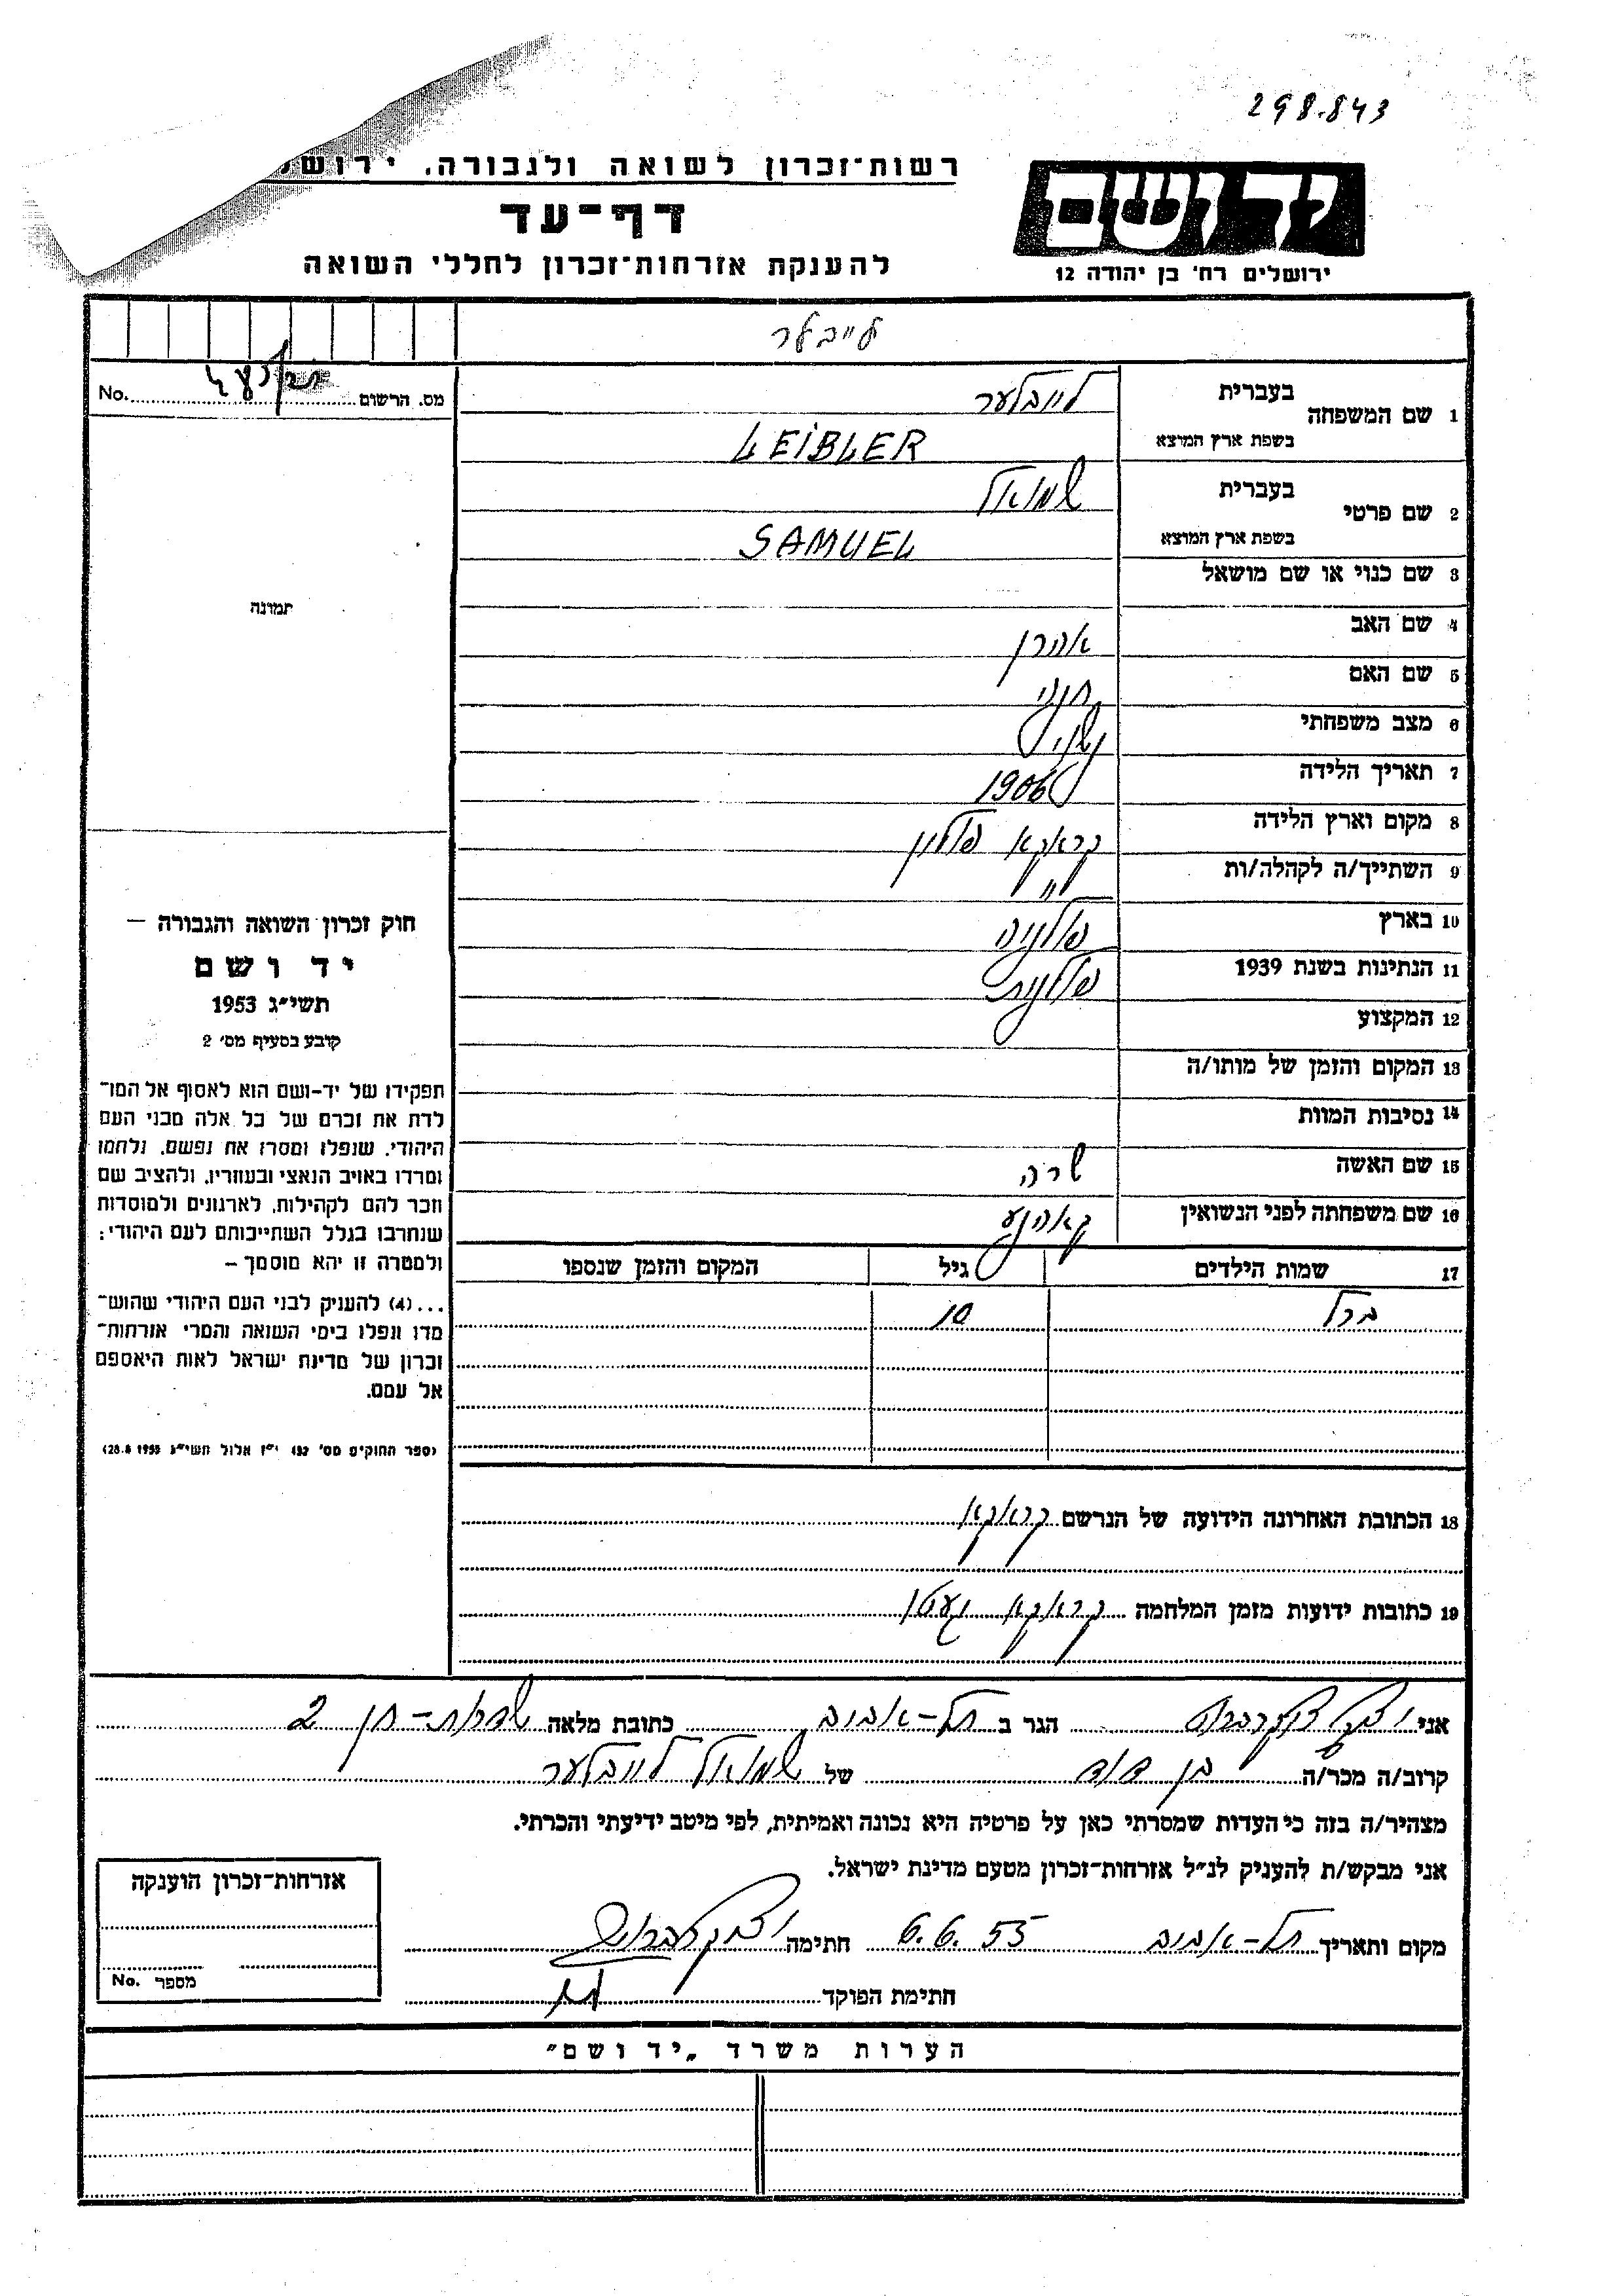 298.843
רשות־זכרון לשואה ולגבורה, ירושל
דף־עד
להענקת אזרחות־זכרון לחללי השואה
יד ושם
ירושלים רח' בן יהודה 12
לייבלר
מס. הרשום No.
תמונה
1 שם המשפחה
בעברית לייבלער
בשפת ארץ המוצא LEIBLER
2 שם פרטי
בעברית שמואל
בשפת ארץ המוצא SAMUEL
3 שם כנוי או שם מושאל
4 שם האב אהרן
5 שם האם
6 מצב משפחתי נשוי
7 תאריך הלידה 1906
8 מקום וארץ הלידה קראקא פולין
9 השתייך/ה לקהלה/ות
10 בארץ פולניה
11 הנתינות בשנת 1939 פולנית
12 המקצוע
13 המקום והזמן של מותו/ה
14 נסיבות המוות
15 שם האשה שרה
16 שם משפחתה לפני הנשואין
17 שמות הילדים גיל המקום והזמן שנספו
10
חוק זכרון השואה והגבורה –
יד ושם
תשי״ג 1953
קובע בסעיף מס' 2
תפקידו של יד-ושם הוא לאסוף אל המו־
לדת את זכרם של כל אלה מבני העם
היהודי, שנפלו ומסרו את נפשם, נלחמו
ומרדו באויב הנאצי ובעוזריו, ולהציב שם
וזכר להם לקהילות, לארגונים ולמוסדות
שנחרבו בגלל השתייכותם לעם היהודי:
ולמטרה זו יהא מוסמך –
...(4) להעניק לבני העם היהודי שהוש־
מדו ונפלו בימי השואה והמרי אזרחות־
זכרון של מדינת ישראל לאות היאספם
אל עמם.
(ספר החוקים מס' 132 י״ז אלול תשי״ג 28.8.1953)
18 הכתובת האחרונה הידועה של הנרשם קראקא
19 כתובות ידועות מזמן המלחמה קראקא געטו
אני הגר ב תל-אביב כתובת מלאה 2
קרוב/ה מכר/ה בן דוד של שמואל לייבלער
מצהיר/ה בזה כי העדות שמסרתי כאן על פרטיה היא נכונה ואמיתית, לפי מיטב ידיעתי והכרתי.
אני מבקש/ת להעניק לנ״ל אזרחות-זכרון מטעם מדינת ישראל.
מקום ותאריך תל-אביב 6.6.55 חתימה
חתימת הפוקד
אזרחות־זכרון הוענקה
מספר No.
הערות משרד „יד ושם״